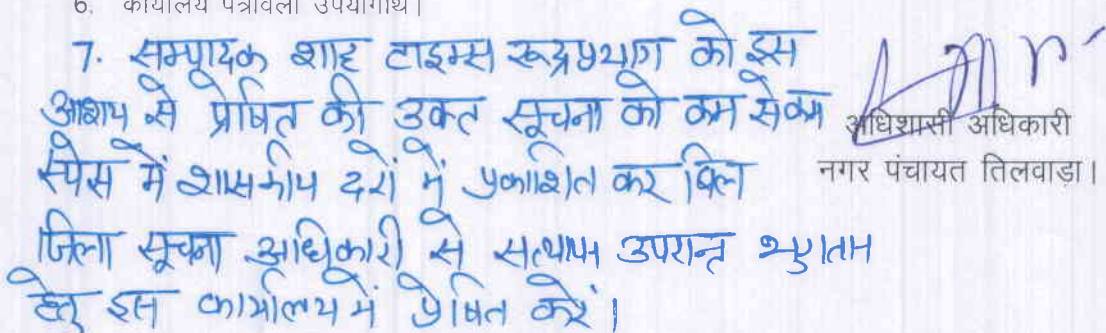 6. कार्यालय पत्रावली उपयोगार्थ।
7. सम्पादक शाह टाइम्स रूद्रप्रयाग को इस
आशय से प्रेषित की उक्त सूचना को कम से कम
स्पेस में शासकीय दरों में प्रकाशित कर बिल
जिला सूचना अधिकारी से सत्यापन उपरान्त भुगतान
हेतु इस कार्यालय में प्रेषित करें।
अधिशासी अधिकारी
नगर पंचायत तिलवाड़ा।